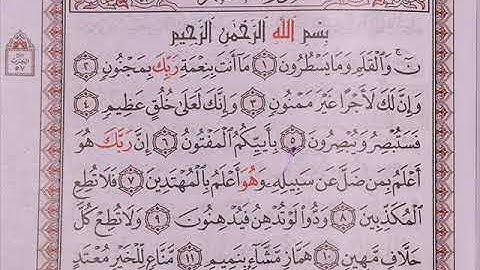 بِسْمِ اللَّهِ الرَّحْمَٰنِ الرَّحِيمِ
نٓ ۚ وَالْقَلَمِ وَمَا يَسْطُرُونَ ﴿١﴾ مَا أَنتَ بِنِعْمَةِ رَبِّكَ بِمَجْنُونٍ ﴿٢﴾
وَإِنَّ لَكَ لَأَجْرًا غَيْرَ مَمْنُونٍ ﴿٣﴾ وَإِنَّكَ لَعَلَىٰ خُلُقٍ عَظِيمٍ ﴿٤﴾
فَسَتُبْصِرُ وَيُبْصِرُونَ ﴿٥﴾ بِأَييِّكُمُ الْمَفْتُونُ ﴿٦﴾ إِنَّ رَبَّكَ هُوَ
أَعْلَمُ بِمَن ضَلَّ عَن سَبِيلِهِ وَهُوَ أَعْلَمُ بِالْمُهْتَدِينَ ﴿٧﴾ فَلَا تُطِعِ
الْمُكَذِّبِينَ ﴿٨﴾ وَدُّوا لَوْ تُدْهِنُ فَيُدْهِنُونَ ﴿٩﴾ وَلَا تُطِعْ كُلَّ
حَلَّافٍ مَّهِينٍ ﴿١٠﴾ هَمَّازٍ مَّشَّاءٍ بِنَمِيمٍ ﴿١١﴾ مَّنَّاعٍ لِّلْخَيْرِ مُعْتَدٍ